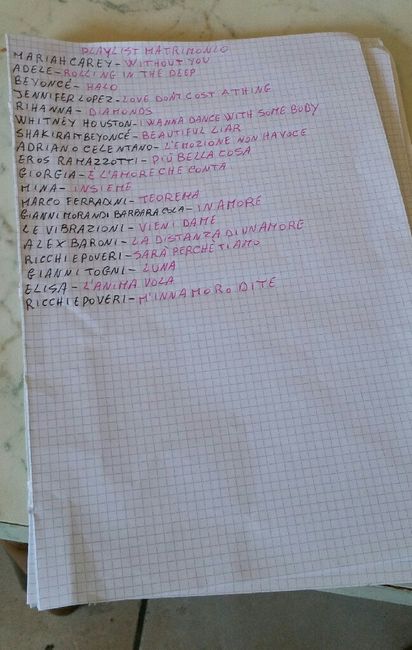 PLAYLIST MATRIMONIO
MARIAH CAREY - WITHOUT YOU
ADELE - ROLLING IN THE DEEP
BEYONCÉ - HALO
JENNIFER LOPEZ - LOVE DON'T COST A THING
RIHANNA - DIAMONDS
WHITNEY HOUSTON - I WANNA DANCE WITH SOME BODY
SHAKIRA FT BEYONCÉ - BEAUTIFUL LIAR
ADRIANO CELENTANO - L'EMOZIONE NON HA VOCE
EROS RAMAZZOTTI - PIÙ BELLA COSA
GIORGIA - È L'AMORE CHE CONTA
MINA - INSIEME
MARCO FERRADINI - TEOREMA
GIANNI MORANDI BARBARA COLA - IN AMORE
LE VIBRAZIONI - VIENI DA ME
ALEX BARONI - LA DISTANZA DI UN AMORE
RICCHI E POVERI - SARÀ PERCHÉ TI AMO
GIANNI TOGNI - LUNA
ELISA - L'ANIMA VOLA
RICCHI E POVERI - M'INNAMORO DI TE